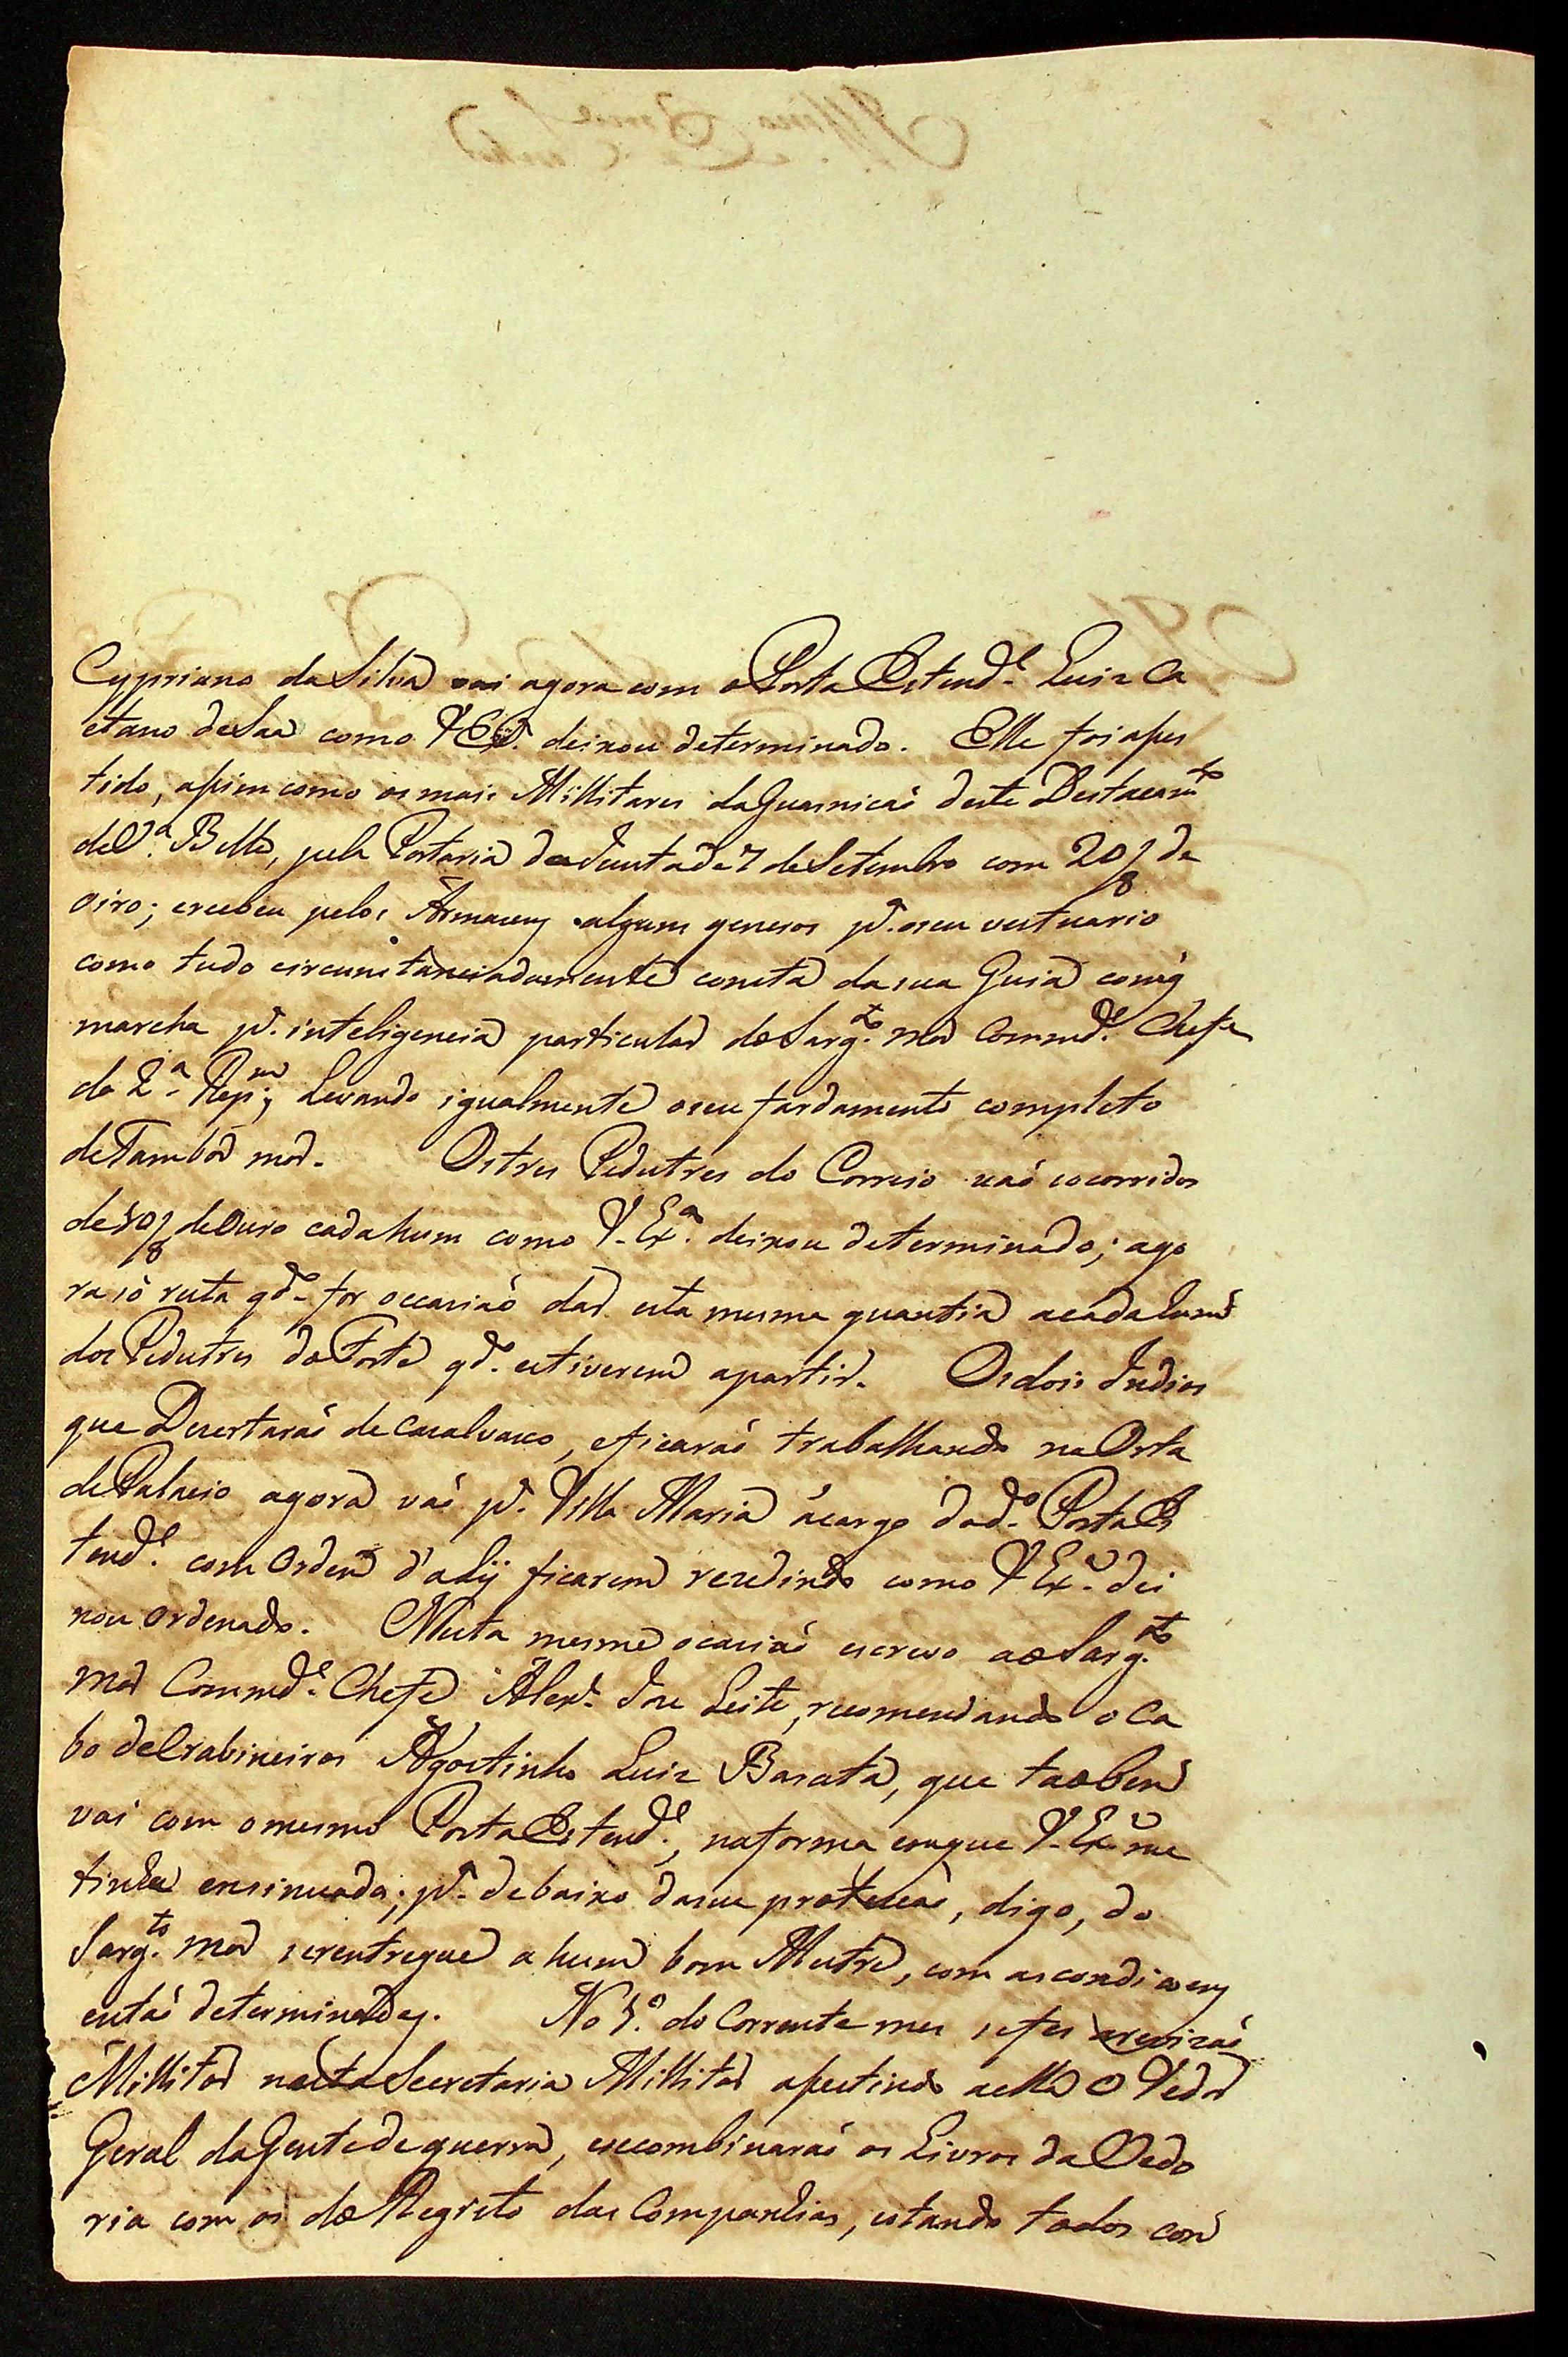 Cypriano da Silva vai agora com o Porta Estend.e Luiz Ca
etano de Saa como V Ex.a deixou determinado. Elle foi asis
tido, asim como os mais Millitares da Guarnicaõ deste Destacam.to
de V.a Bella, pela Portaria da Junta de 7 de Setembro com 20/8 de
oiro; erecebeu pelos Armazeẽs alguns generos p.a oseu vestuario
como tudo circunstanciadamente consta da sua Guia comq̃
marcha p.a inteligencia particular do Sarg.to Mor Commd.e Chefe
da 2.a Rep.m; Levando igualmente oseu fardamento completo
de Tambor mor. Os tres Pedestres do Correio vaõ socorridos
de 10/8 de Ouro cada hum como V. Ex.a deixou determinado; ago
ra só resta qd.o for occasiaõ dar esta mesma quantia acada hum
dos Pedestres do Forte qd.o estiverem apartir. Os dois Indios
que Desertaraõ de Casalvasco, eficaraõ trabalhando na Orta
de Palacio agora vaõ p.a Villa Maria ácargo do d.o Porta Es
tend.e com Ordem d'alij ficarem rezedindo como V Ex.a dei
xou Ordenado. Nesta mesma ocasiaõ escrevo ao Sarg.to
Mor Commd.e Chefe Alex.e Joze Leite, recomendando o Ca
bo de Crabineiros Agostinho Luiz Barata, que taobem
vai com o mesmo Porta Estend.e, na forma emque V. Ex.a me
tinha ensinuado; p.a debaixo dasua proteçaõ, digo, do
Sarg.to Mor ser entregue a hum bom Mestre, com as condiçoens
estaõ determinadas. No 1.o do Corrente mes sefes arevizaõ
Millitar nesta Secretaria Millitar asestindo aella O Vedor
Geral da Gente de guerra, esecombinaraõ os Livros da Vedo
ria com os do Registo das Companhias, estando todos com